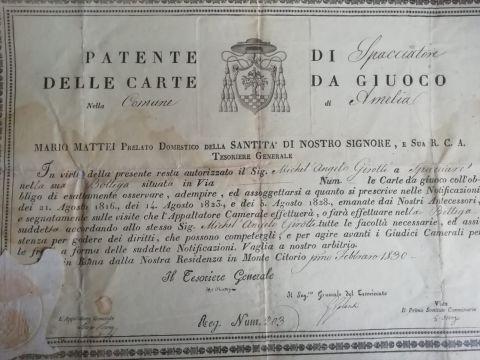 PATENTE DI Spacciatore
DELLE CARTE DA GIUOCO
Nella Comune di Amelia
MARIO MATTEI PRELATO DOMESTICO DELLA SANTITA' DI NOSTRO SIGNORE, E SUA R. C. A.
TESORIERE GENERALE
In virtù della presente resta autorizzato il Sig. Michel Angelo Girotti a Spacciare
nella sua Bottega situata in Via Num. le Carte da giuoco coll'ob-
bligo di esattamente osservare, adempire, ed assoggettarsi a quanto si prescrive nelle Notificazioni
dei 21. Agosto 1816, dei 14. Agosto 1823, e dei 5. Agosto 1828, emanate dai Nostri Antecessori,
e segnatamente sulle visite che l'Appaltatore Camerale effettuerà, o farà effettuare nella Bottega
suddetta accordando allo stesso Sig. Michel Angelo Girotti tutte le facoltà necessarie, ed assi-
stenza per godere dei diritti, che possono competergli, e per agire avanti i Giudici Camerali per
le a forma delle suddette Notificazioni. Vaglia a nostro arbitrio.
in Roma dalla Nostra Residenza in Monte Citorio primo Febbraro 1830
Il Tesoriere Generale
Il Seg. Generale del Tesorierato
Visto
L'Appaltatore Camerale
Il Primo Sostituto Commissario
Reg. Num. 203